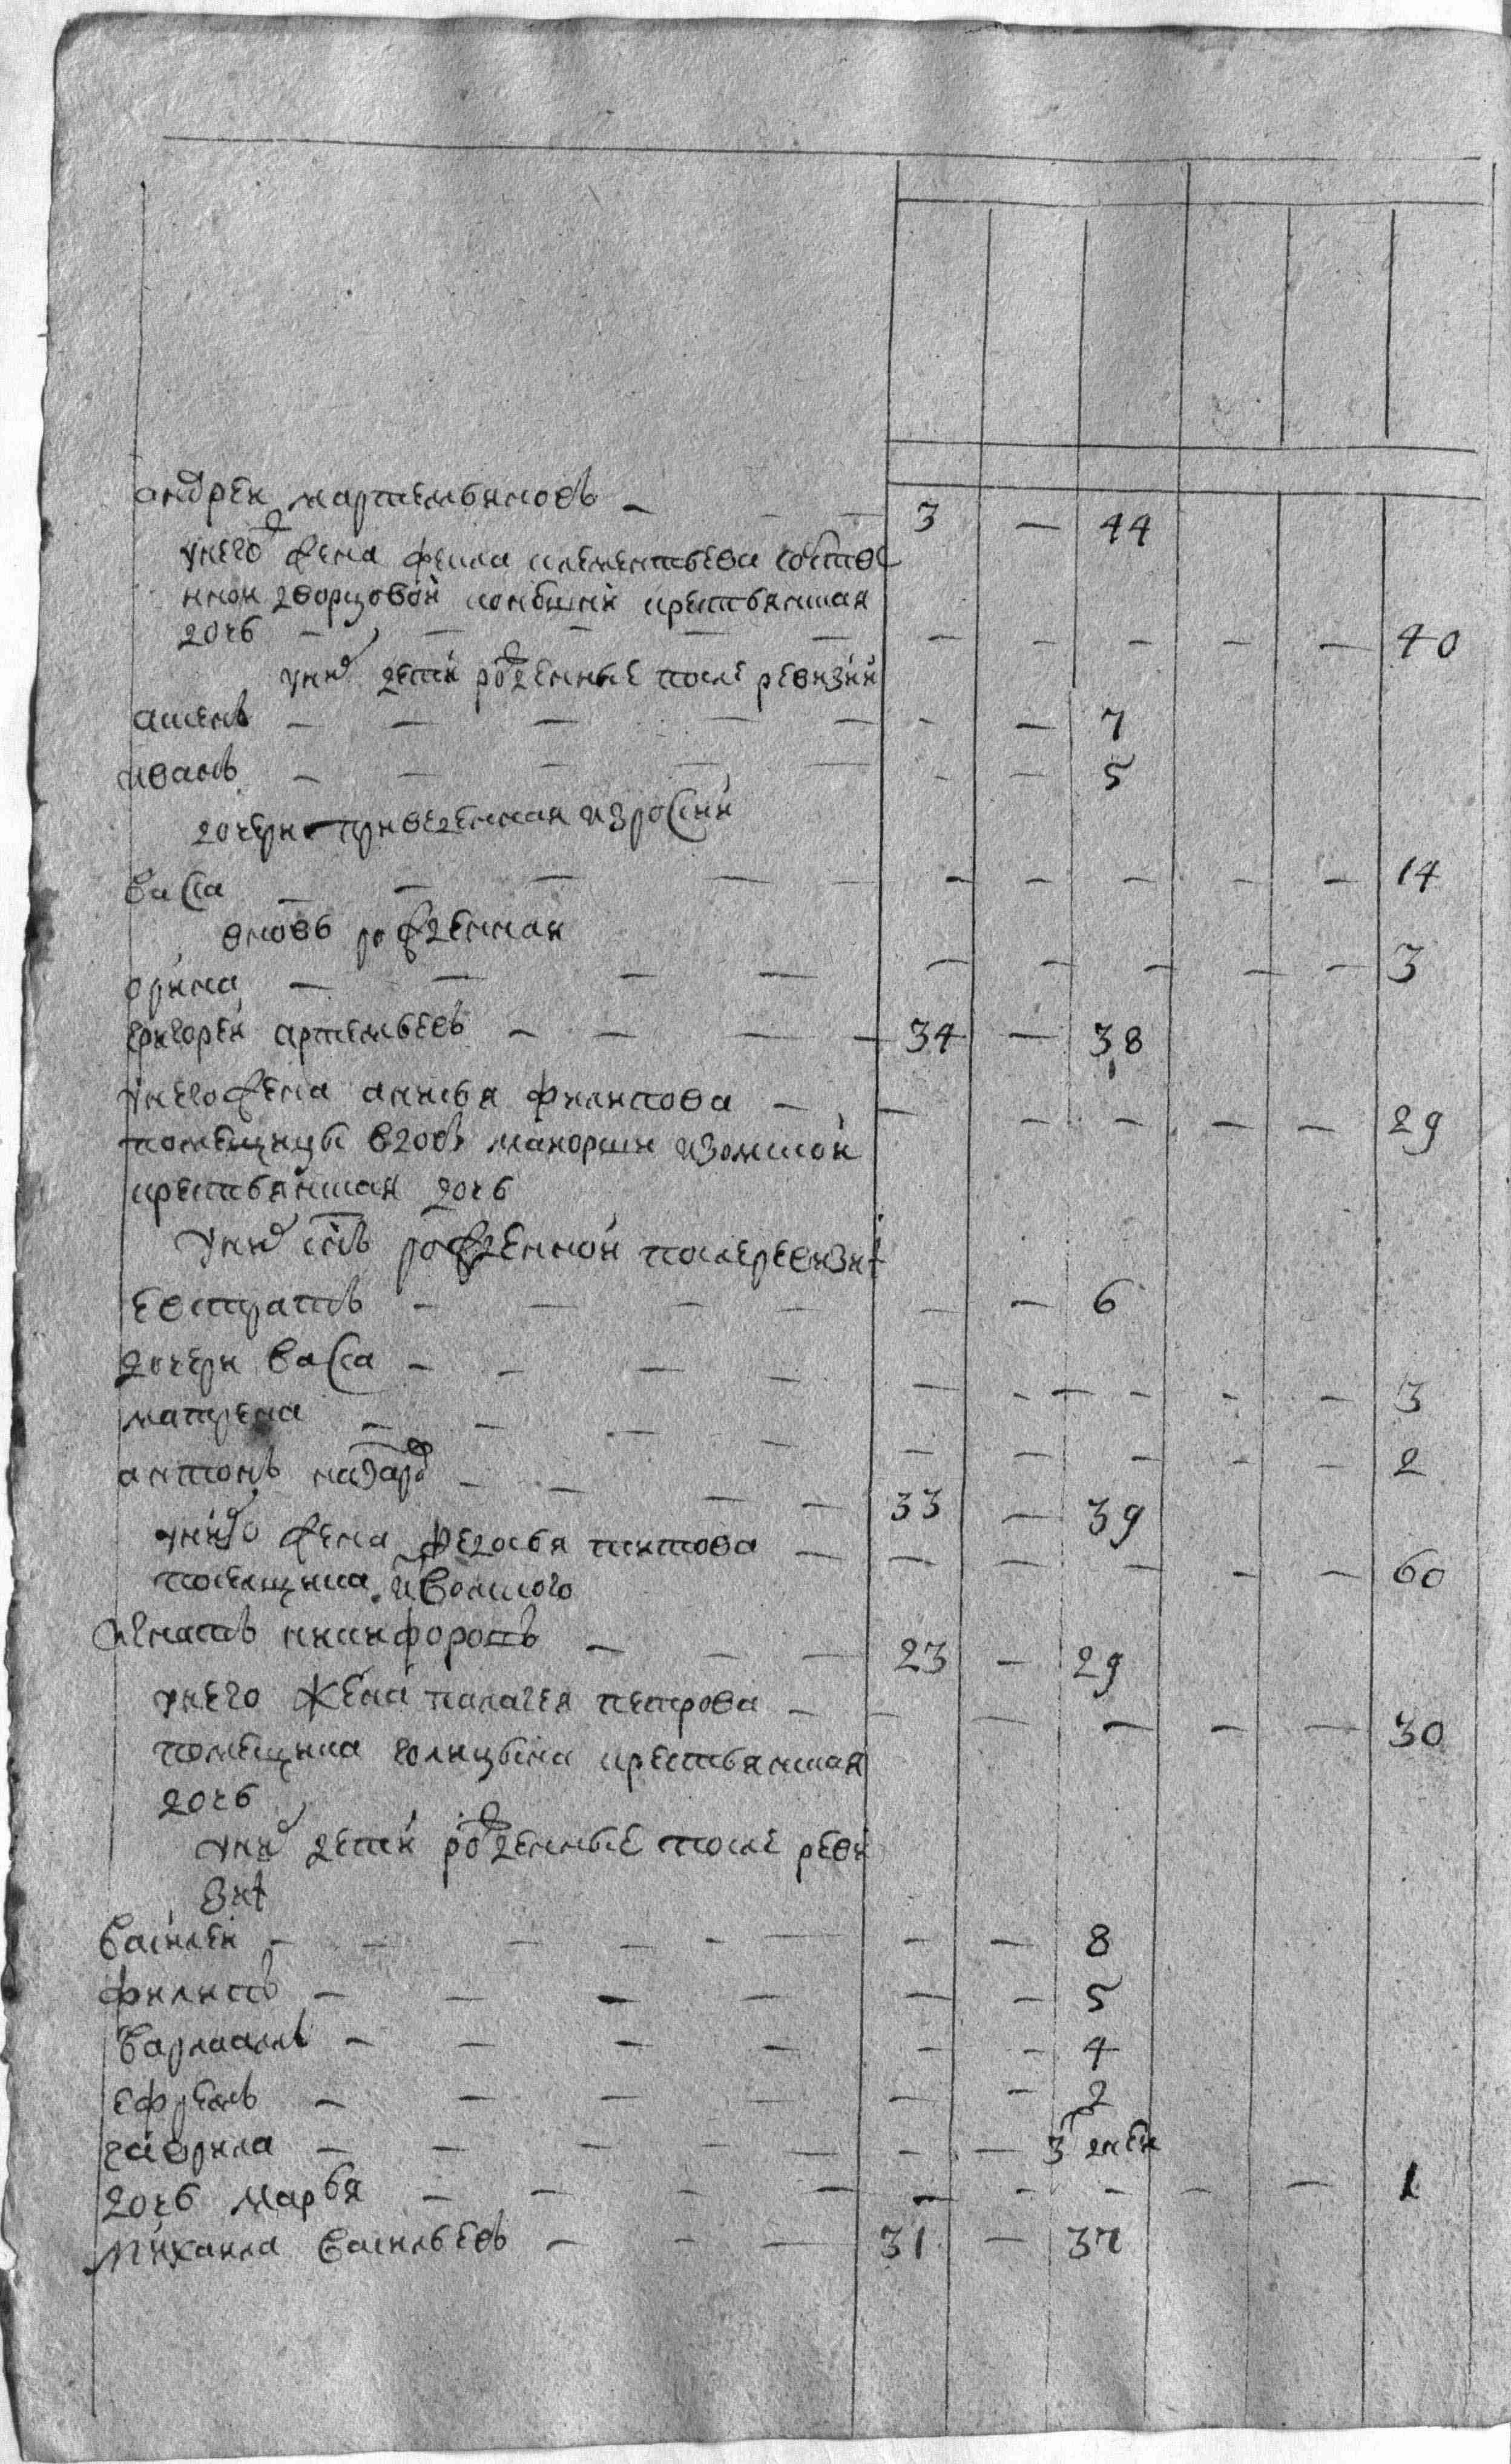 андреи мартемьяновъ — — — 3 — 44
унего жена фекла клементьева
ннои дворцовои конюшни крестьянская
дочь — — — — — — — — — — 40
уних дети рожденные после ревизии
— — — — — — — 7
иванъ — — — — — — — 5
дочери привезенная изросии
васса — — — — — — — — — — 14
вновь рожденная
орина — — — — — — — — — 3
григореи артемьевъ — — — — 34 — 38
унегожена анисья филипова — — — — — — 29
помещицы вдовы
крестьянская дочь
уних снъ рожденнои послеревизиі
евстратъ — — — — — — 6
дочери васса — — — — — — — — — — 3
матрена — — — — — — — — — 2
антонъ назаро — — — — 33 — 39
унего жена федосья титова — — — — — — 60
помещика
игнатъ никифоровъ — — — 23 — 29
унего жена палагея петрова — — — — — — 30
помещика голицына крестьянская
дочь
уних дети рожденные после реви
зиі
василеи — — — — — — — — 8
филипъ — — — — — — 5
варлаамъ — — — — — — 4
ефремъ — — — — — — 2
гаврила — — — — — — — 3 дней
дочь марья — — — — — — — — — 1
михаила васильевъ — — — 31 — 37